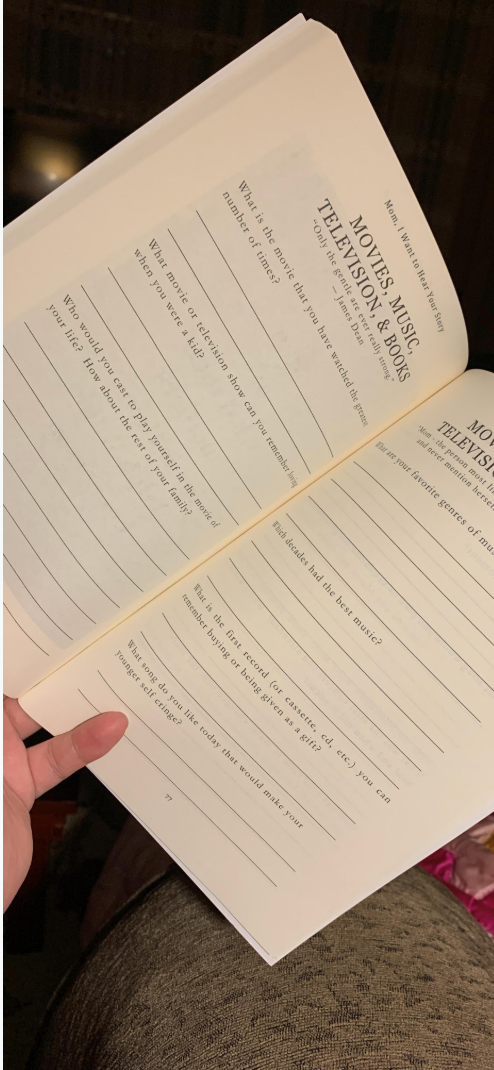 Mom, I Want to Hear Your Story
MOVIES, MUSIC,
TELEVISION, & BOOKS
"Only the gentle are ever really strong."
— James Dean
What is the movie that you have watched the greatest
number of times?
What movie or television show can you remember loving
when you were a kid?
Who would you cast to play yourself in the movie of
your life? How about the rest of your family?
"Mom - the person most
and never mention
are your favorite genres of
Which decades had the best music?
What is the first record (or cassette, cd, etc.) you can
remember buying or being given as a gift?
What song do you like today that would make your
younger self cringe?
77